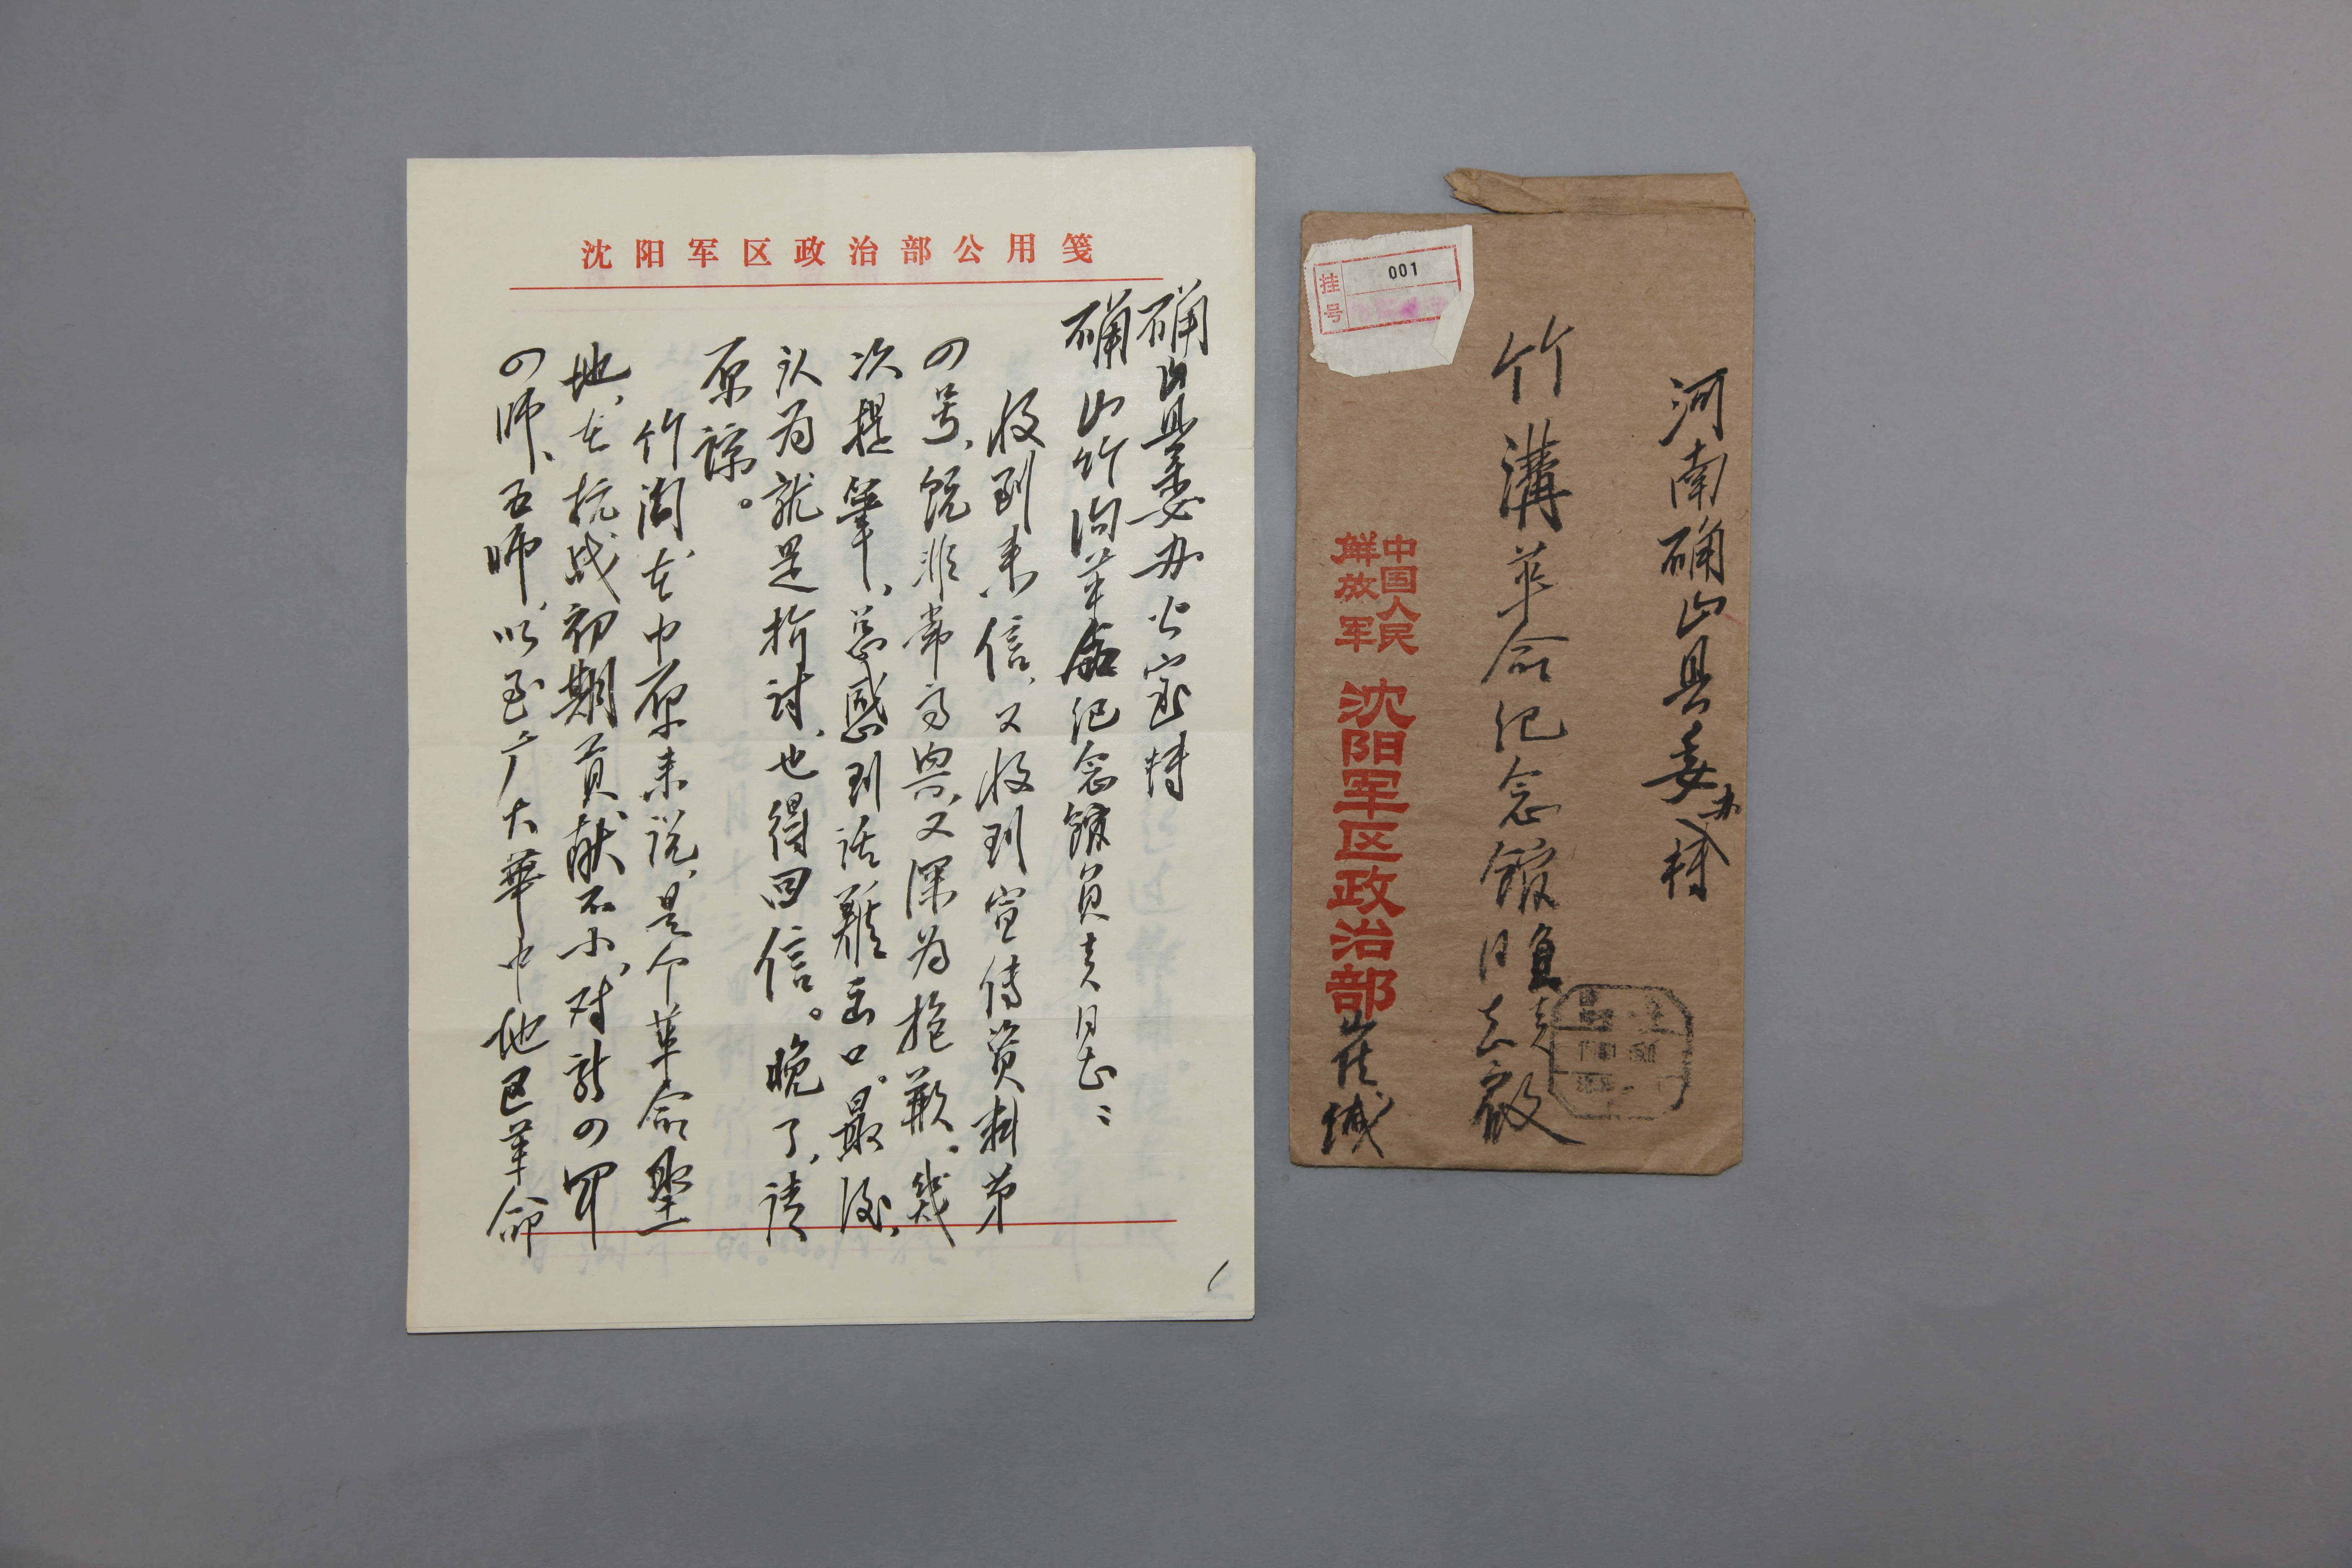 沈阳军区政治部公用笺
确山县委办公室转
确山竹沟革命纪念馆负责同志：
收到来信，又收到宣传资料第
四号，既非常高兴，又深为抱歉。几
次提笔，总感到话难出口。最后，
认为就是检讨，也得回信。晚了，请
原谅。
竹沟在中原来说，是个革命圣
地，在抗战初期贡献不小，对新四军
四师、五师，以至广大華中地区革命
1
挂号
001
河南确山县委办转
竹溝革命纪念馆负责
同志 收
中国人民
解放军
沈阳军区政治部
缄